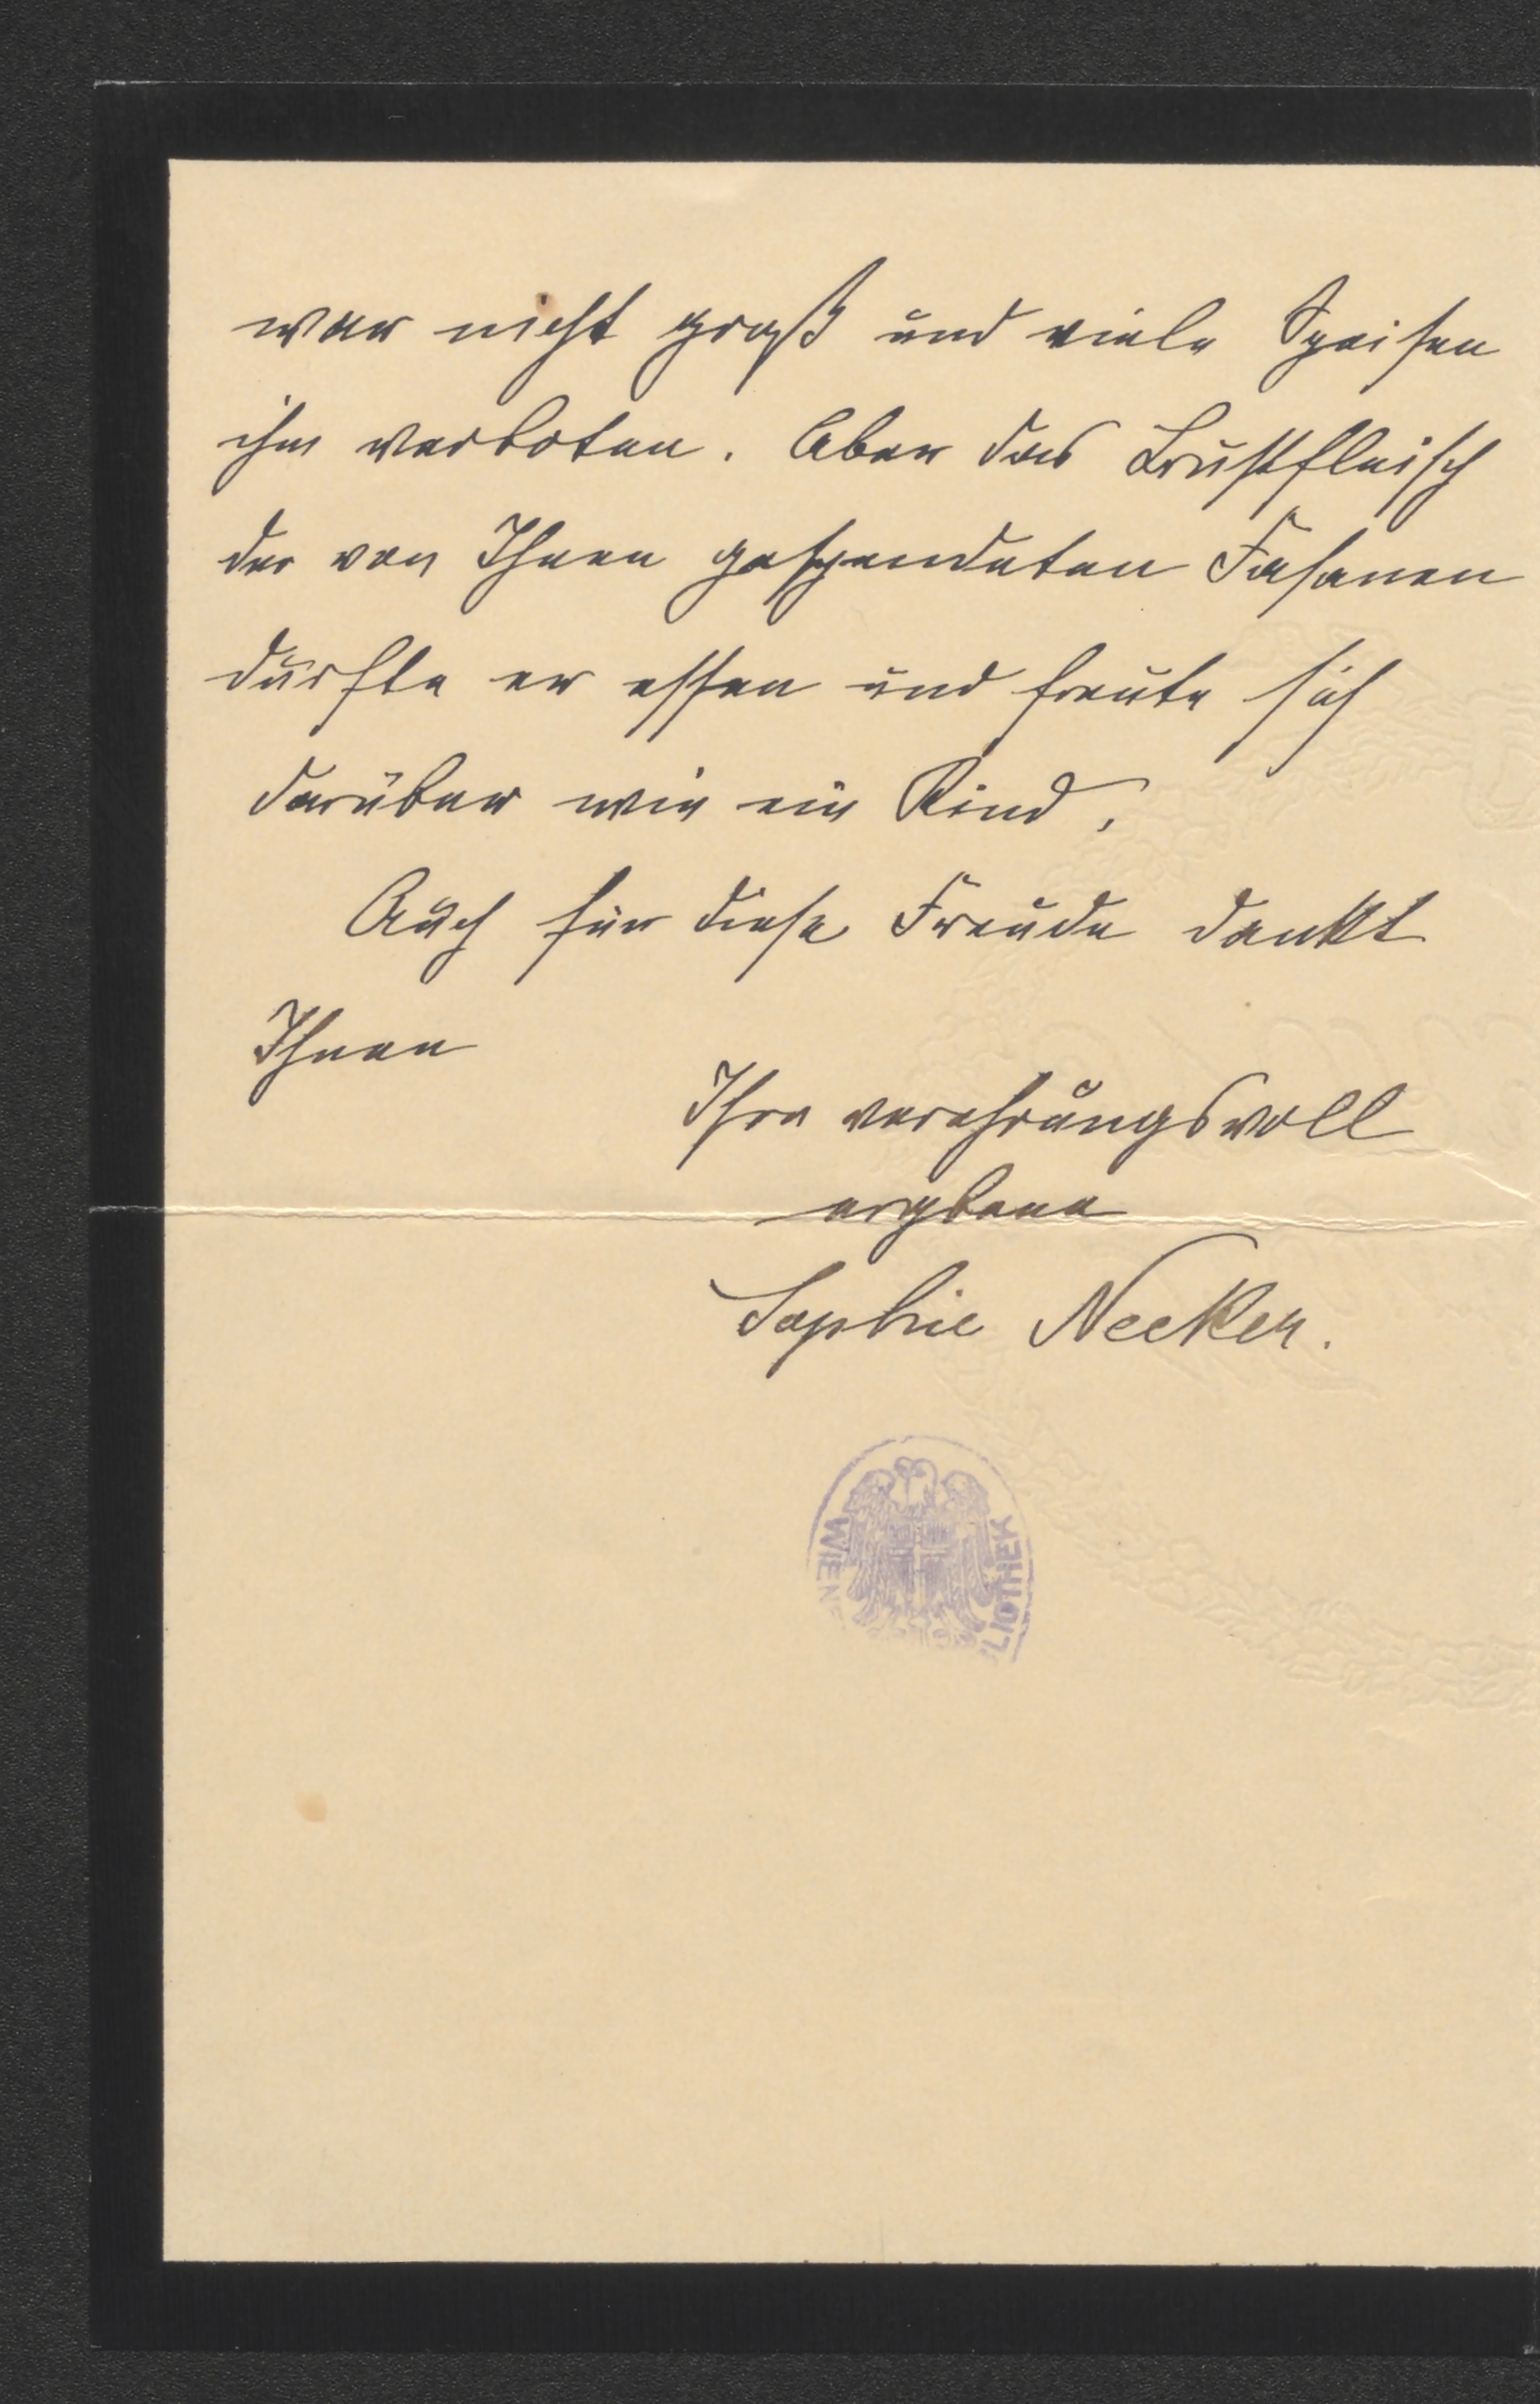 war nicht groß und viele Speisen
ihm verboten. Aber das Brustfleisch
der von Ihnen gespendeten Fasanen
durfte er essen und freute sich
darüber wie ein Kind.
Auch für diese Freude dankt
Ihnen
Ihre verehrungsvoll
ergbene
Sophie Necker.
WIEN
LIOTHEK